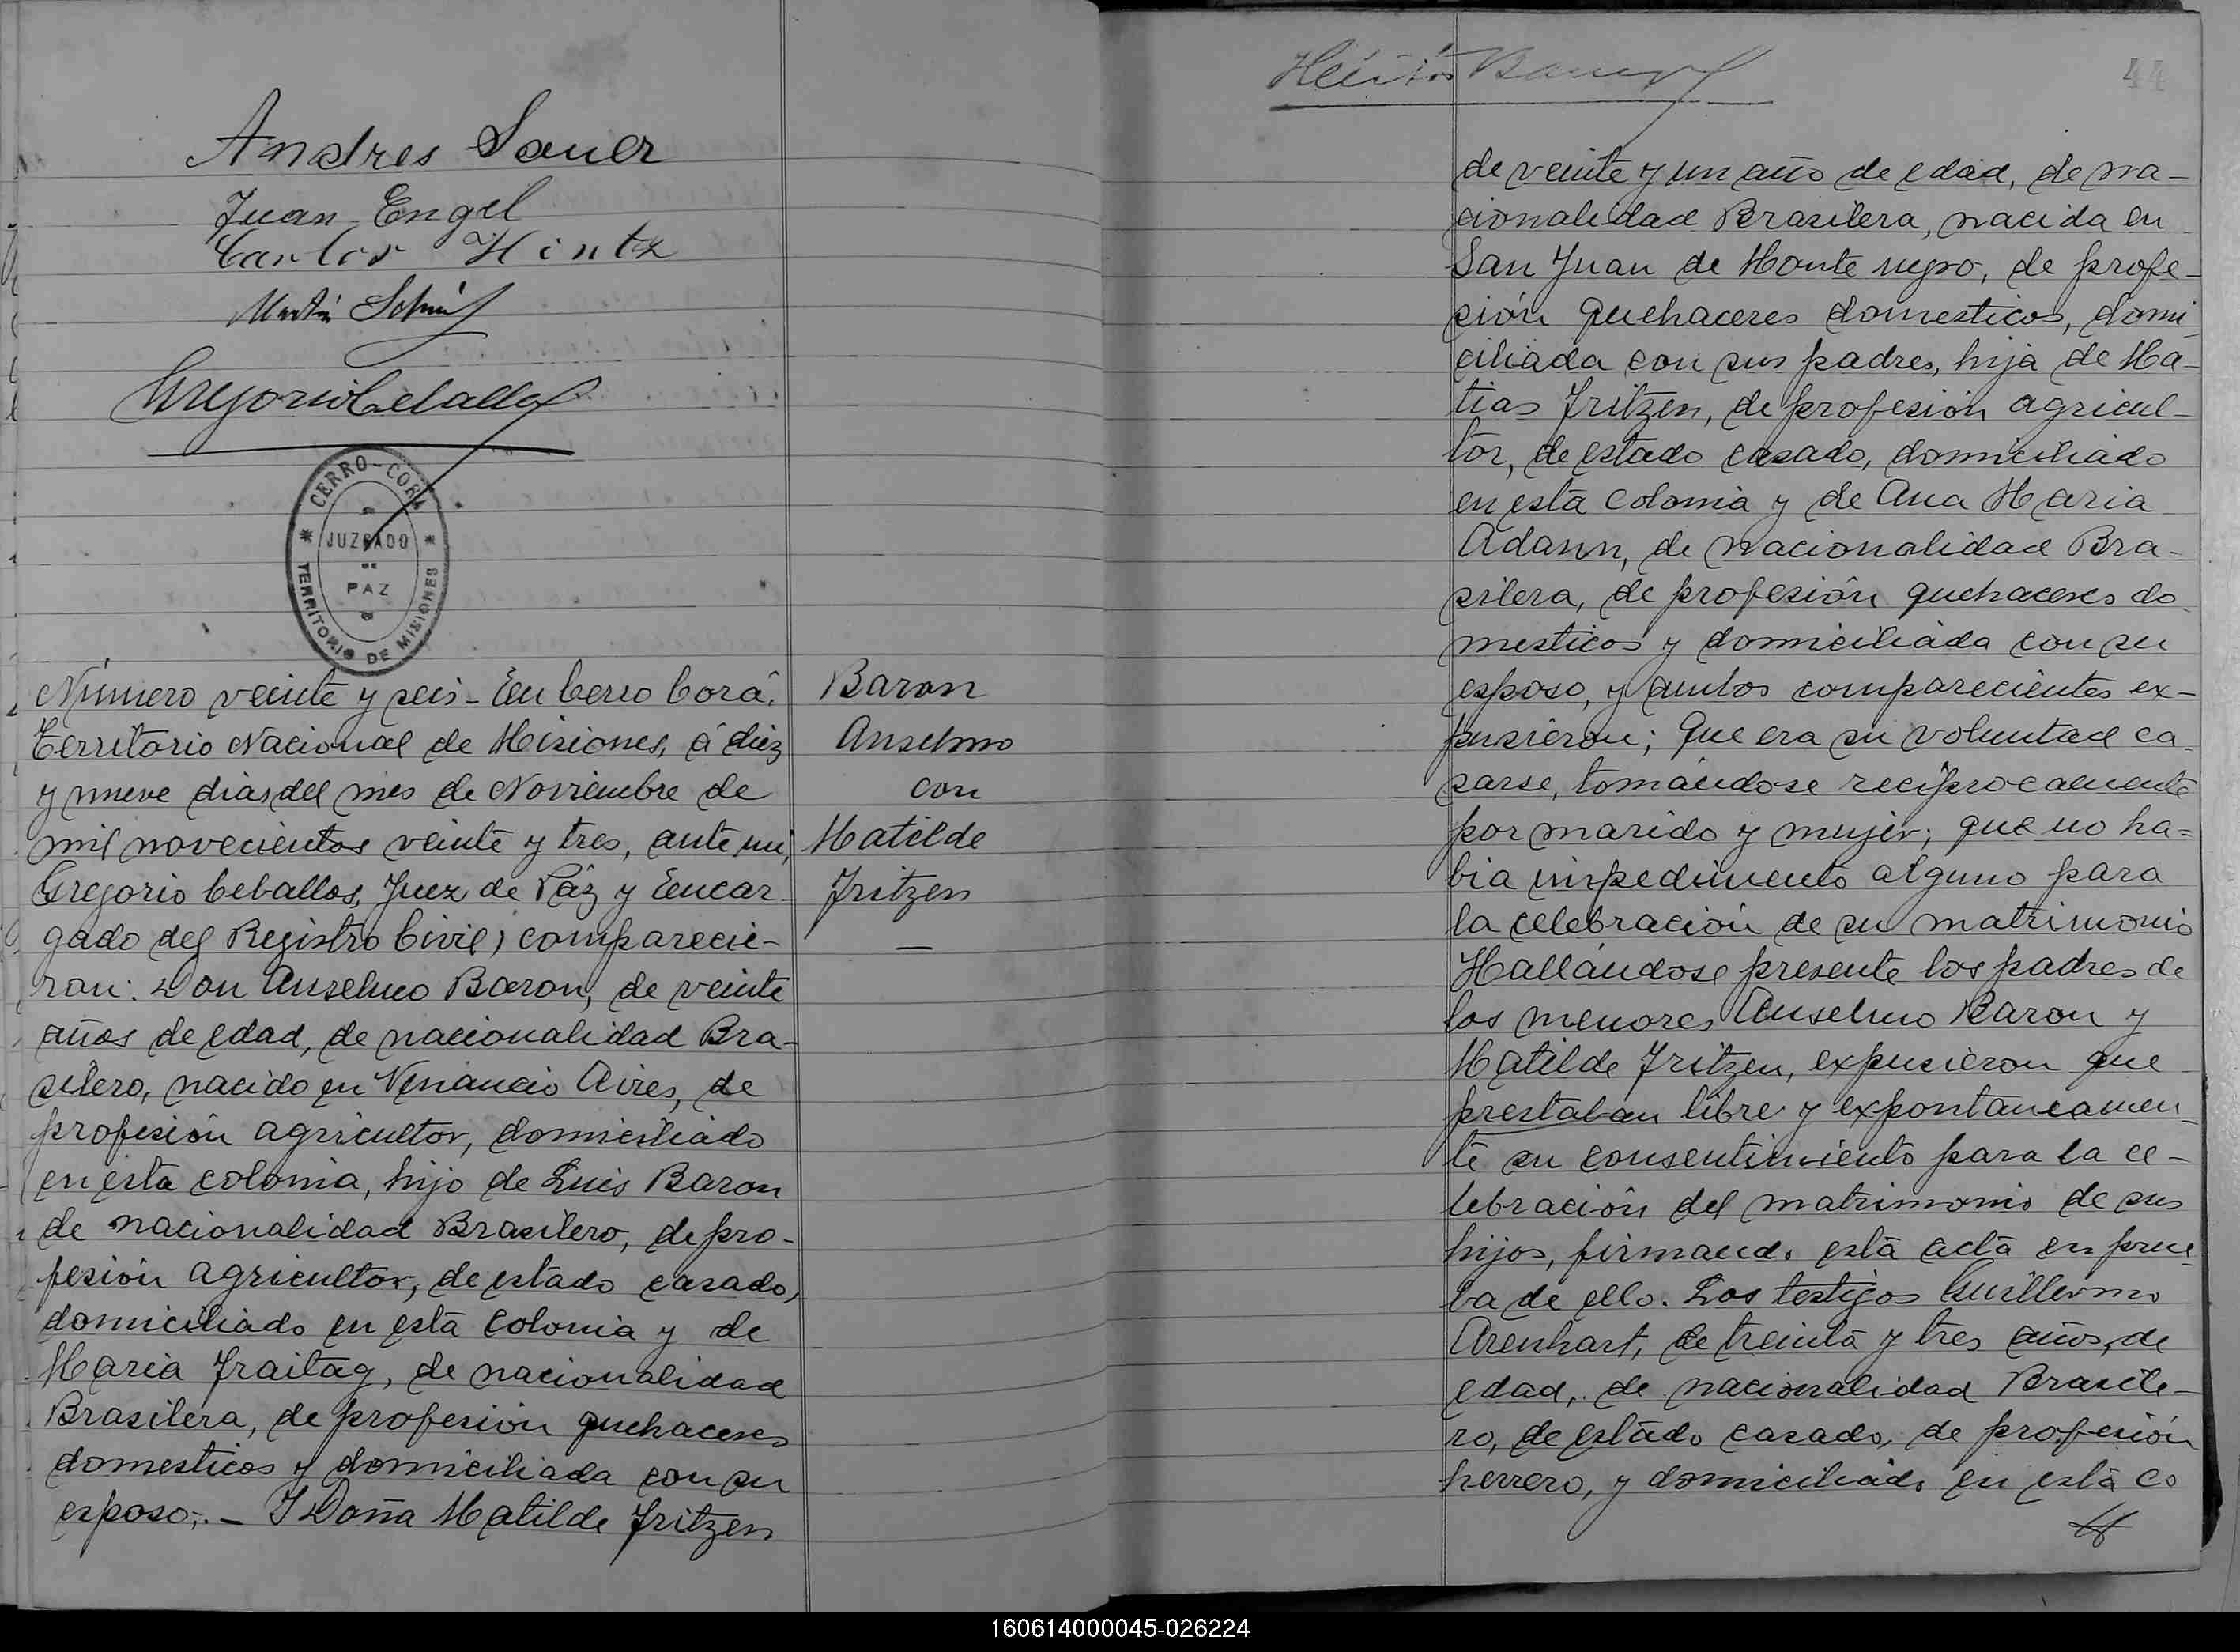 Andres Sauer
Juan Engel
Carlos Hintz
Martin
Gregorio Ceballos
CERRO-CORA
JUZGADO
DE
PAZ
TERRITORIO DE MISIONES
Número veinte y seis - En Cerro Corá,
Territorio Nacional de Misiones, á diez
y nueve dias del mes de Noviembre de
mil novecientos veinte y tres, ante mi,
Gregorio Ceballos, Juez de Páz y Encar-
gado del Registro Civil, comparecie-
ron: Don Anselmo Baron, de veinte
años de edad, de nacionalidad Bra-
silero, nacido en Venancio Aires, de
profesión agricultor, domiciliado
en esta colonia, hijo de Luis Baron
de nacionalidad Brasilero, de pro-
fesión agricultor, de estado casado,
domiciliado en esta Colonia y de
Maria Fraitag, de nacionalidad
Brasilera, de profesión quehaceres
domesticos y domiciliada con su
esposo;. - Y Doña Matilde Fritzen
Baron
Anselmo
con
Matilde
Fritzen
—
44
de veinte y un año de edad, de na-
cionalidad Brasilera, nacida en
San Juan de Monte negro, de profe-
sión quehaceres domesticos, domi
ciliada con sus padres, hija de Ma-
tias Fritzen, de profesión agricul-
tor, de estado casado, domiciliado
en esta Colonia y de Ana Maria
Adann, de nacionalidad Bra-
silera, de profesión quehaceres do
mesticos y domiciliada con su
esposo, y ambos comparecientes ex-
pusieron; Que era su voluntad ca-
sarse, tomándose reciprocamente
por marido y mujer; que no ha=
bia impedimento alguno para
la celebración de su matrimonio
Hallándose presente los padres de
los menores Anselmo Baron y
Matilde Fritzen, expusieron que
prestaban libre y expontaneamen-
te su consentimiento para la ce-
lebración del matrimonio de sus
hijos, firmando esta acta en prue
ba de ello. Los testigos Guillermo
Arenhart, de treinta y tres años, de
edad, de nacionalidad Brasile-
ro, de estado casado, de profesión
herrero, y domiciliado en esta Co
160614000045-026224